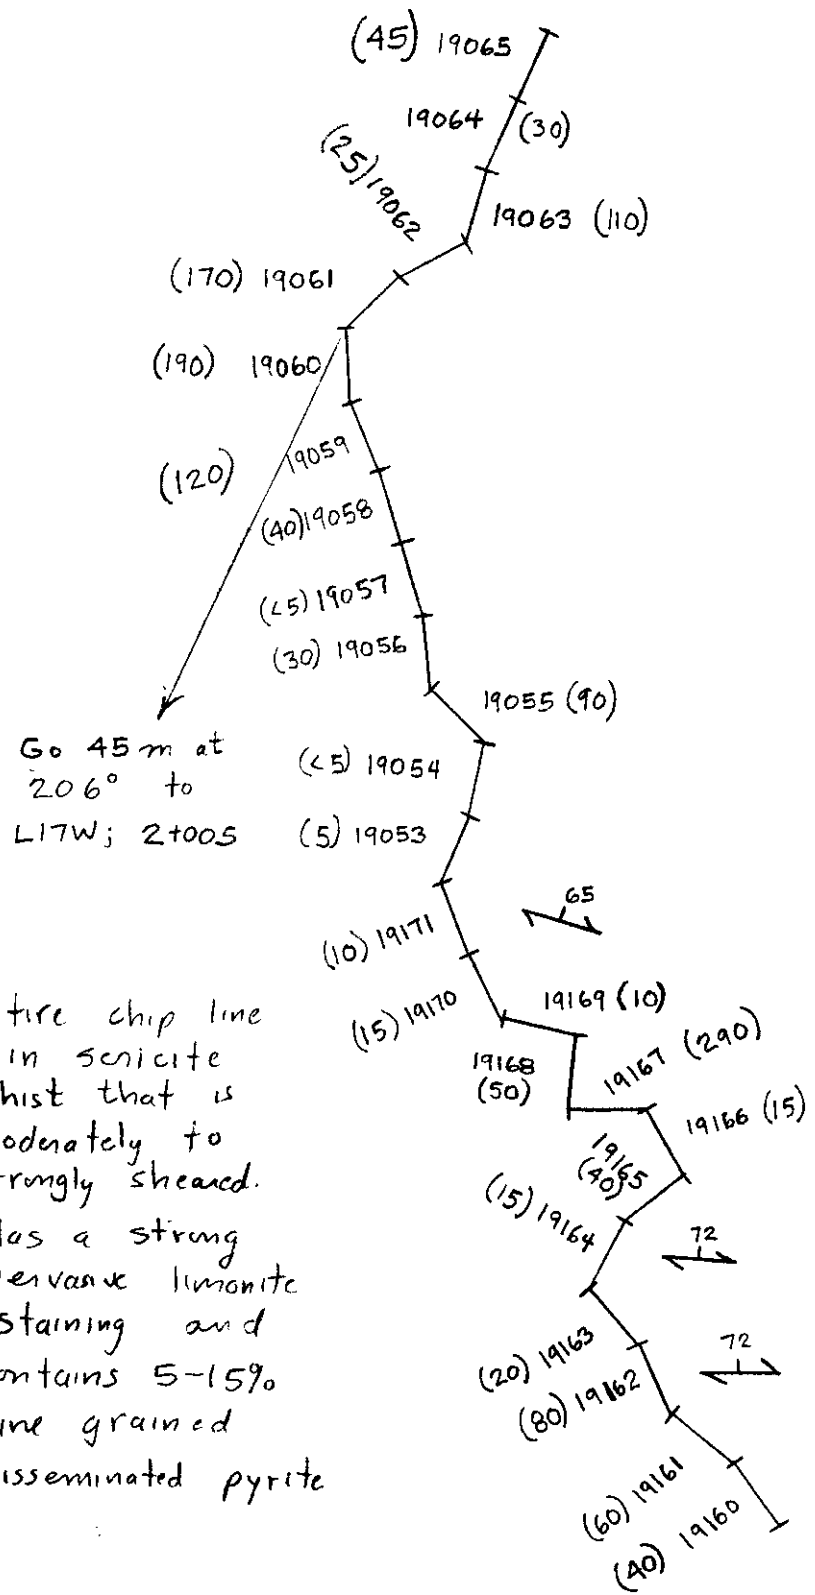 (45) 19065
19064 (30)
(25) 19062
19063 (110)
(170) 19061
(190) 19060
(120) 19059
(40) 19058
(<5) 19057
(30) 19056
19055 (90)
Go 45 m at
206° to
L17W; 2+00S
(<5) 19054
(5) 19053
65
(10) 19171
(15) 19170
19169 (10)
19168
(50)
19167 (290)
19166 (15)
19165
(40)
(15) 19164
72
(20) 19163
72
(80) 19162
(60) 19161
(40) 19160
tire chip line
in sericite
hist that is
oderately to
rongly sheared.
as a strong
ervasive limonite
staining and
ontains 5-15%
ine grained
isseminated pyrite